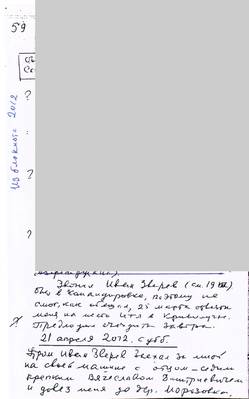 59
Из блокнота 2012
?
?
?
Звонил Иван Зверев (см. 19
был в командировке, поэтому не
смог, как обещал, 25 марта отвезти
меня на место ИТЛ в Кривлучье.
Предложил съездить завтра.
21 апреля 2012. субб.
Утром Иван Зверев заехал за мной
на своей машине с отцом – седым
крепким Вячеславом Дмитриевичем
и довёз меня до дер. Морозовка.